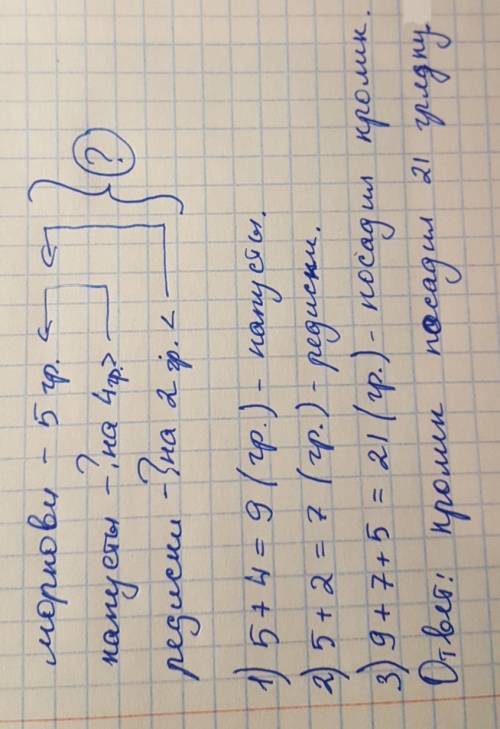 моркови – 5 гр.
капусты – ?, на 4 гр. >
редиски – ?, на 2 гр. <
?
1) 5 + 4 = 9 (гр.) – капусты.
2) 5 + 2 = 7 (гр.) – редиски.
3) 9 + 7 + 5 = 21 (гр.) – посадил кролик.
Ответ: кролик посадил 21 грядку.